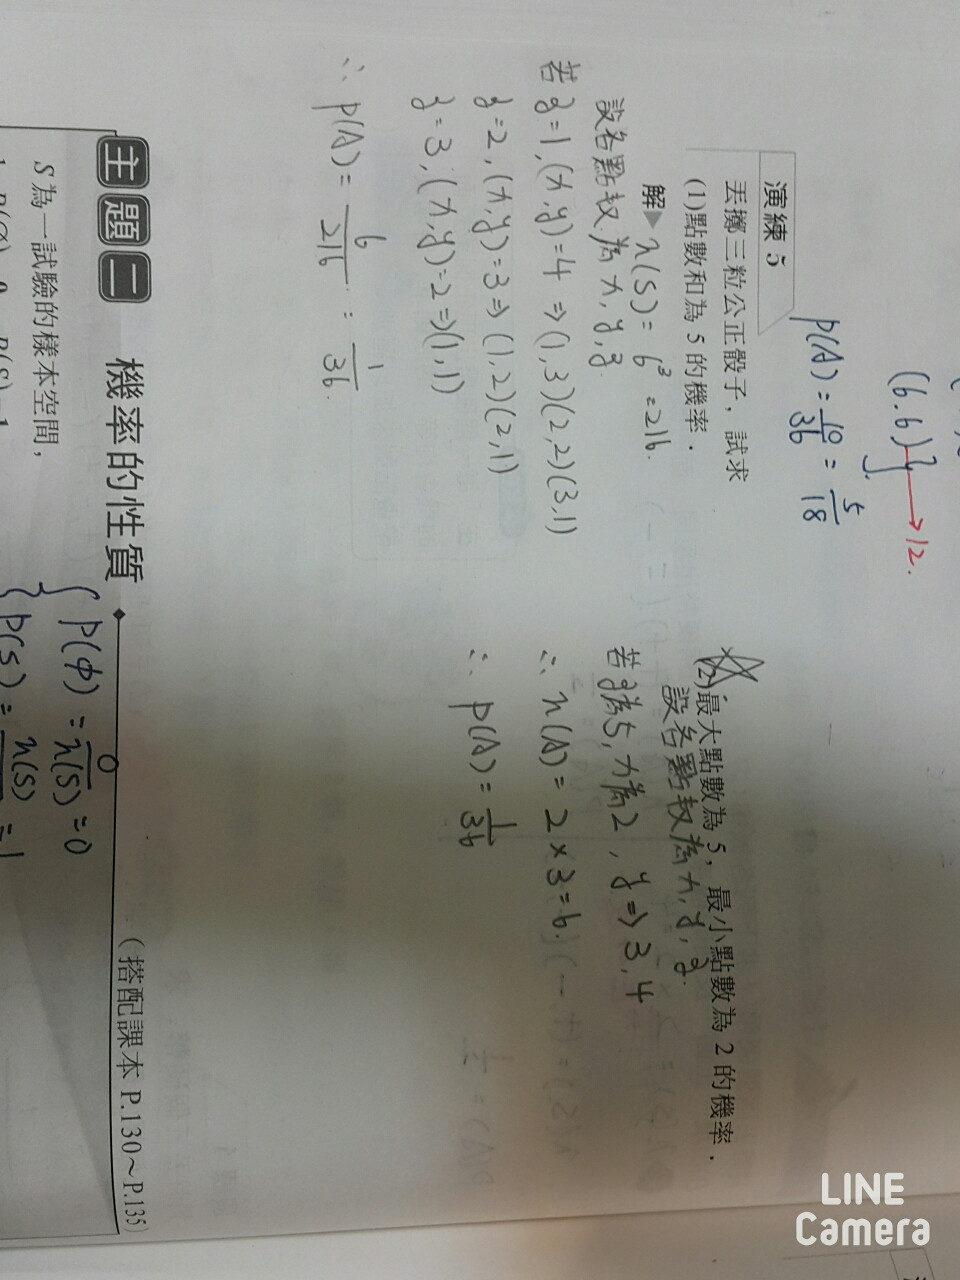 (6.6)}→12.
P(A)=10/36=5/18
演練 5
丟擲三粒公正骰子，試求
(1)點數和為 5 的機率．
解▶ n(S)=6³=216.
設各點數為x,y,z
若z=1,(x,y)=4 ⇒(1,3)(2,2)(3,1)
z=2,(x,y)=3⇒(1,2)(2,1)
z=3,(x,y)=2⇒(1,1)
∴ P(A)=6/216=1/36.
(2)最大點數為 5，最小點數為 2 的機率．
設各點數為x,y,z.
若z為5,x為2,y⇒3,4
∴ n(A)=2×3=6.
∴ P(A)=1/36
主題二 機率的性質
(搭配課本 P.130～P.135)
S 為一試驗的樣本空間，
P(φ)=0/n(S)=0